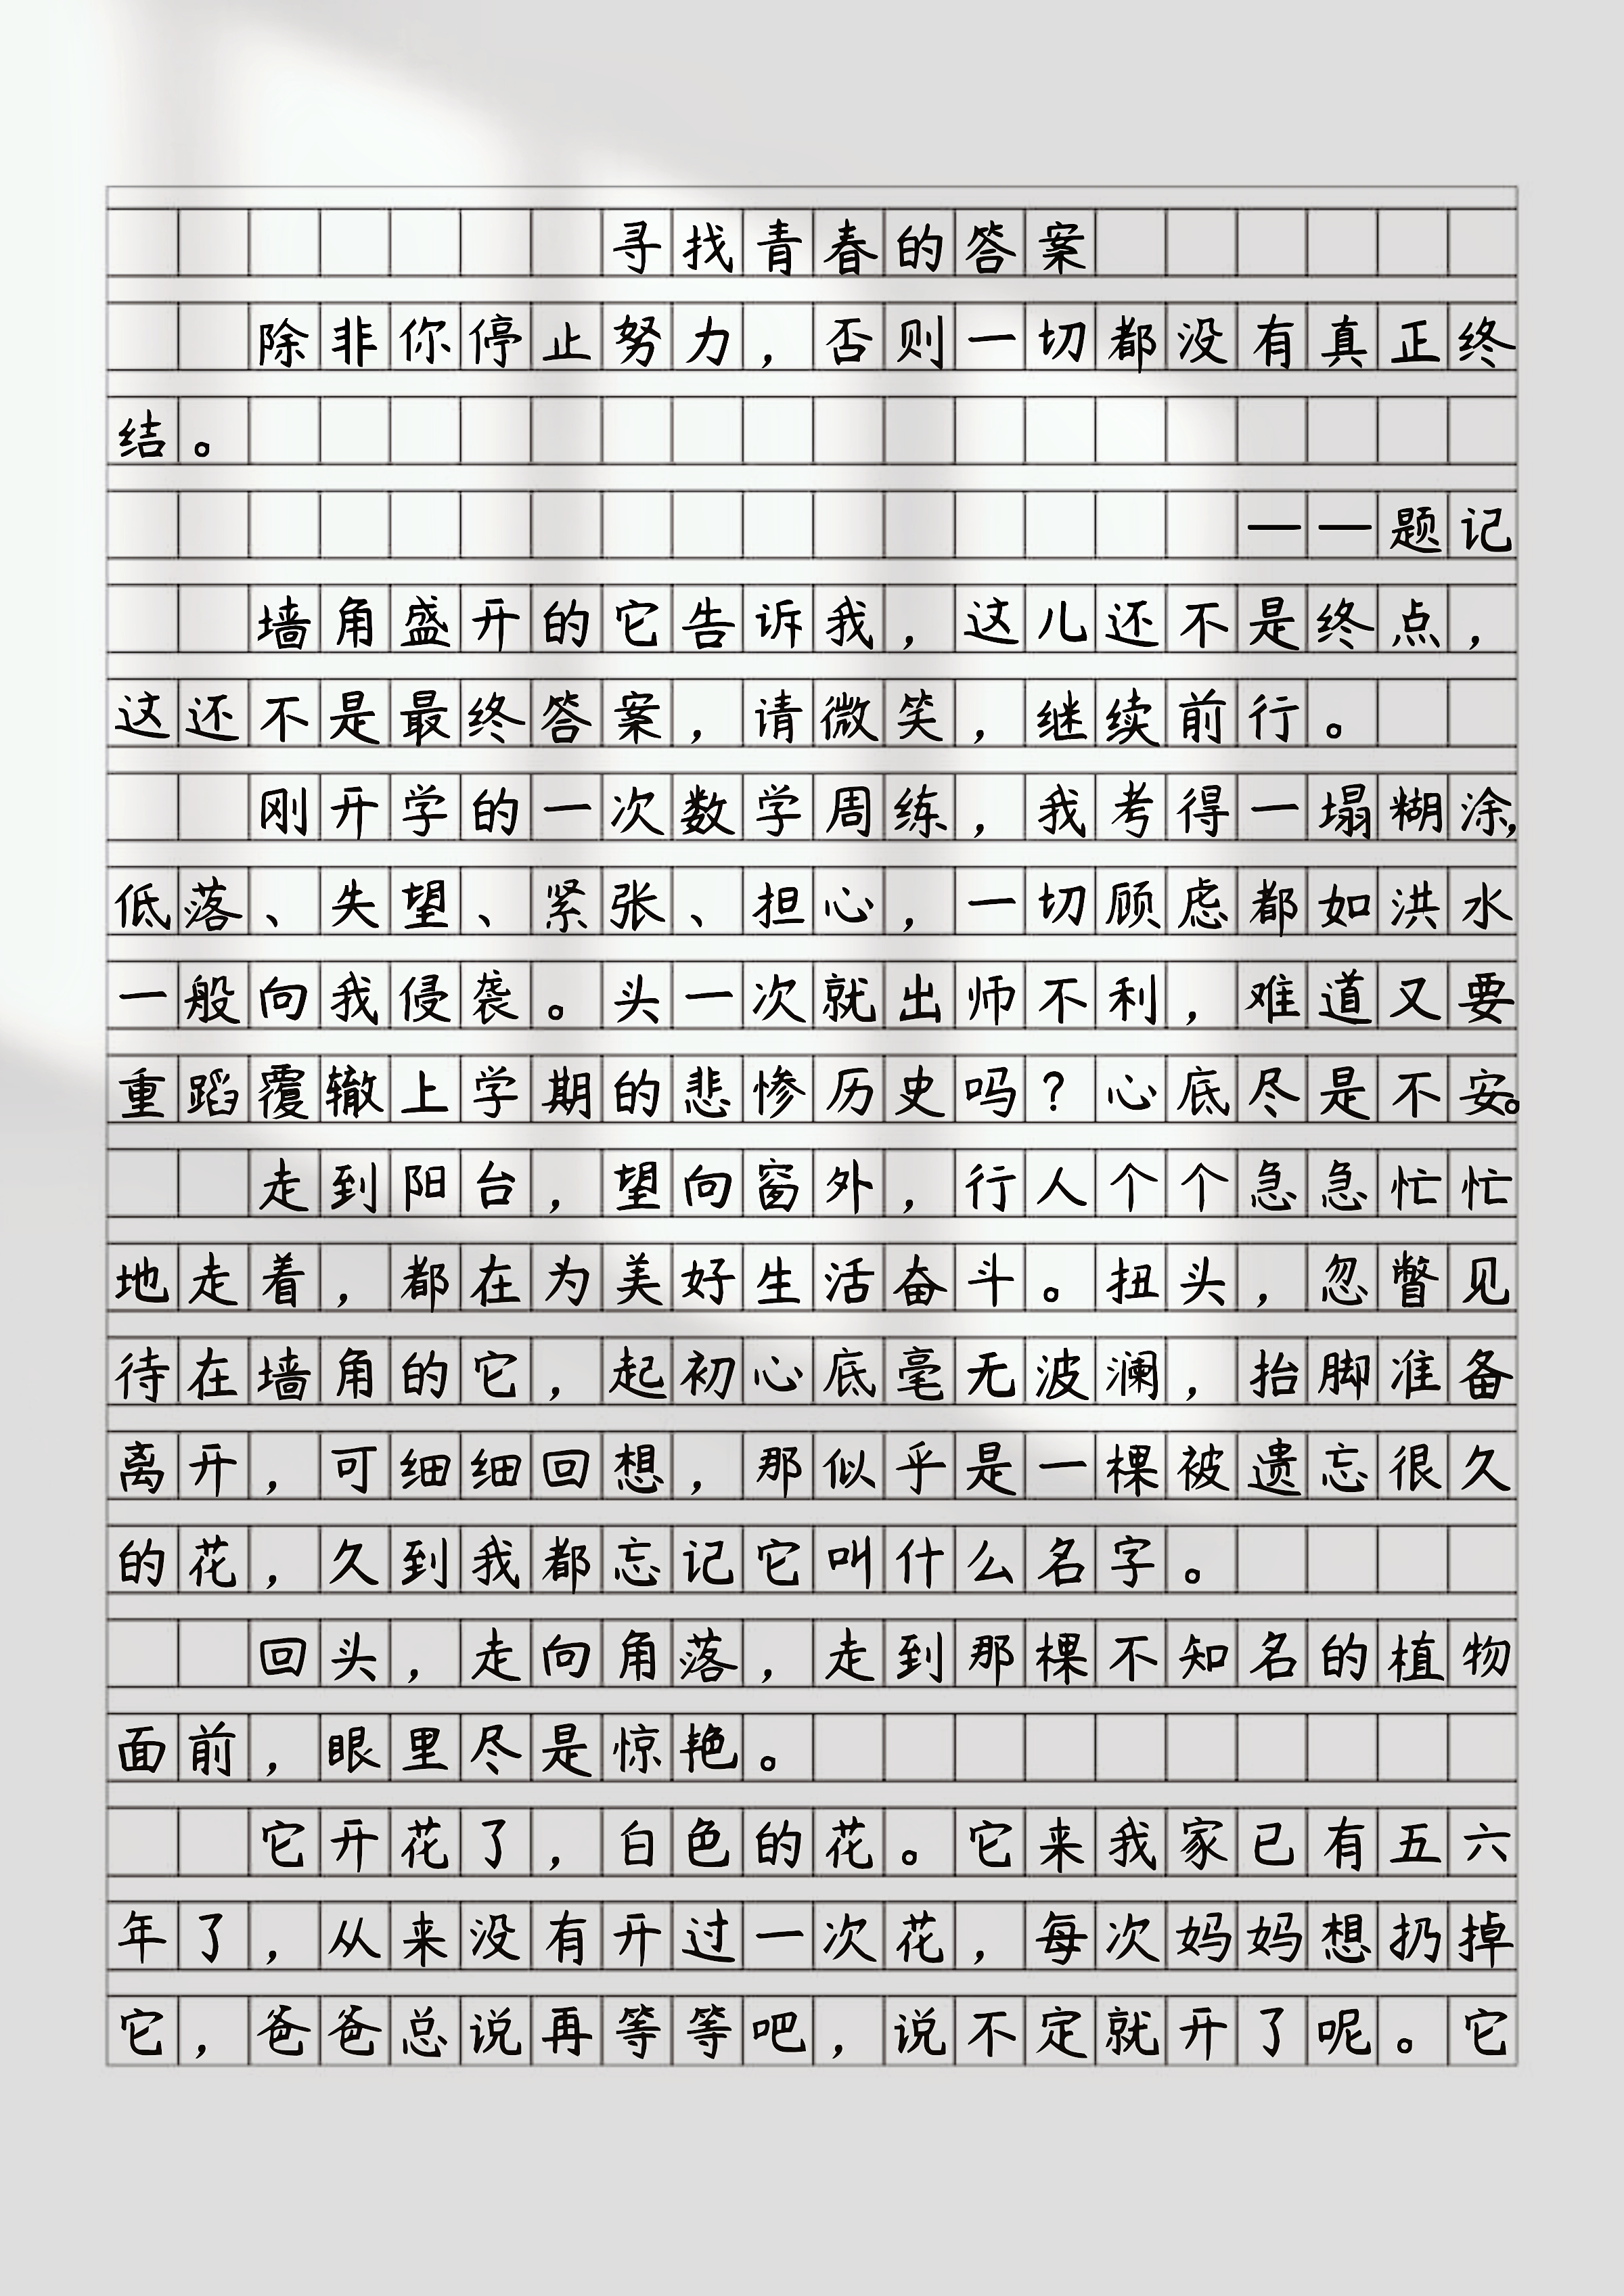 寻找青春的答案
除非你停止努力，否则一切都没有真正终
结。
——题记
墙角盛开的它告诉我，这儿还不是终点，
这还不是最终答案，请微笑，继续前行。
刚开学的一次数学周练，我考得一塌糊涂，
低落、失望、紧张、担心，一切顾虑都如洪水
一般向我侵袭。头一次就出师不利，难道又要
重蹈覆辙上学期的悲惨历史吗？心底尽是不安。
走到阳台，望向窗外，行人个个急急忙忙
地走着，都在为美好生活奋斗。扭头，忽瞥见
待在墙角的它，起初心底毫无波澜，抬脚准备
离开，可细细回想，那似乎是一棵被遗忘很久
的花，久到我都忘记它叫什么名字。
回头，走向角落，走到那棵不知名的植物
面前，眼里尽是惊艳。
它开花了，白色的花。它来我家已有五六
年了，从来没有开过一次花，每次妈妈想扔掉
它，爸爸总说再等等吧，说不定就开了呢。它